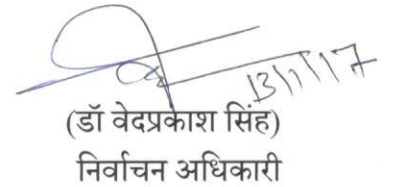 13/1/17
(डॉ वेदप्रकाश सिंह)
निर्वाचन अधिकारी